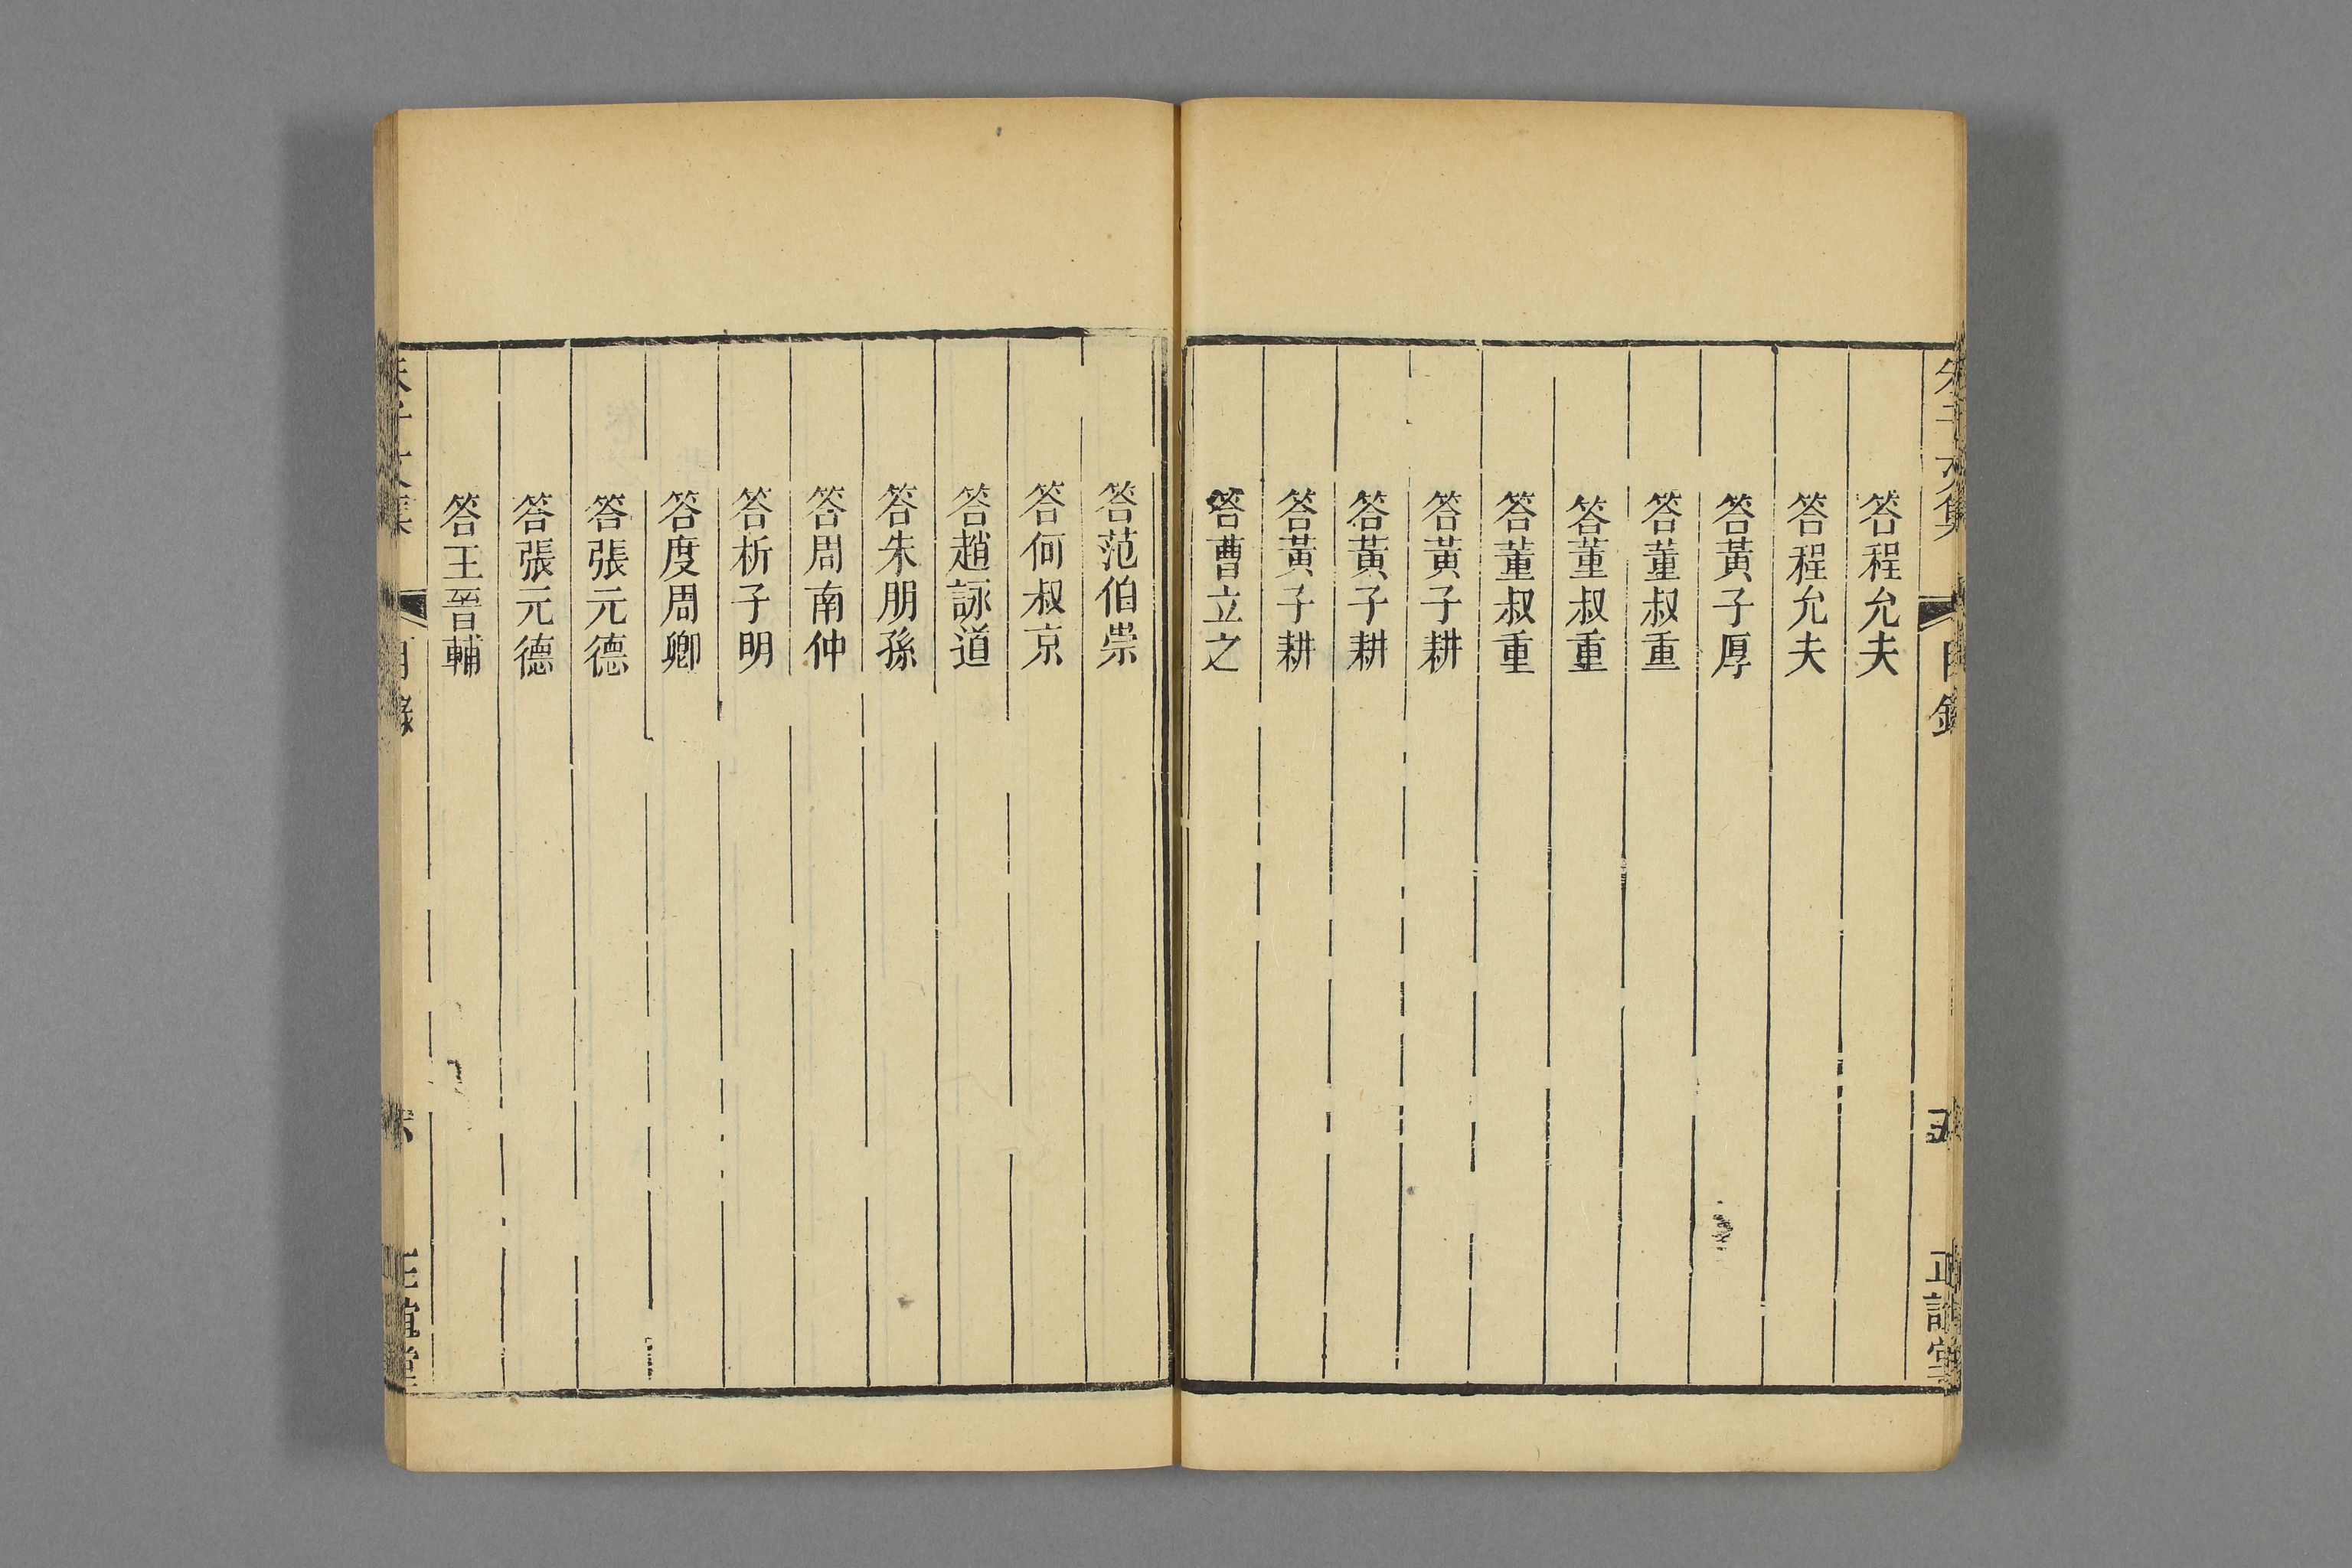 朱子文集 目錄 五 正誼堂
答程允夫
答程允夫
答黃子厚
答董叔重
答董叔重
答董叔重
答黃子耕
答黃子耕
答黃子耕
答曹立之
答范伯崇
答何叔京
答趙詠道
答朱朋孫
答周南仲
答析子明
答度周卿
答張元德
答張元德
答王晉輔
朱子文集 目錄 六 正誼堂